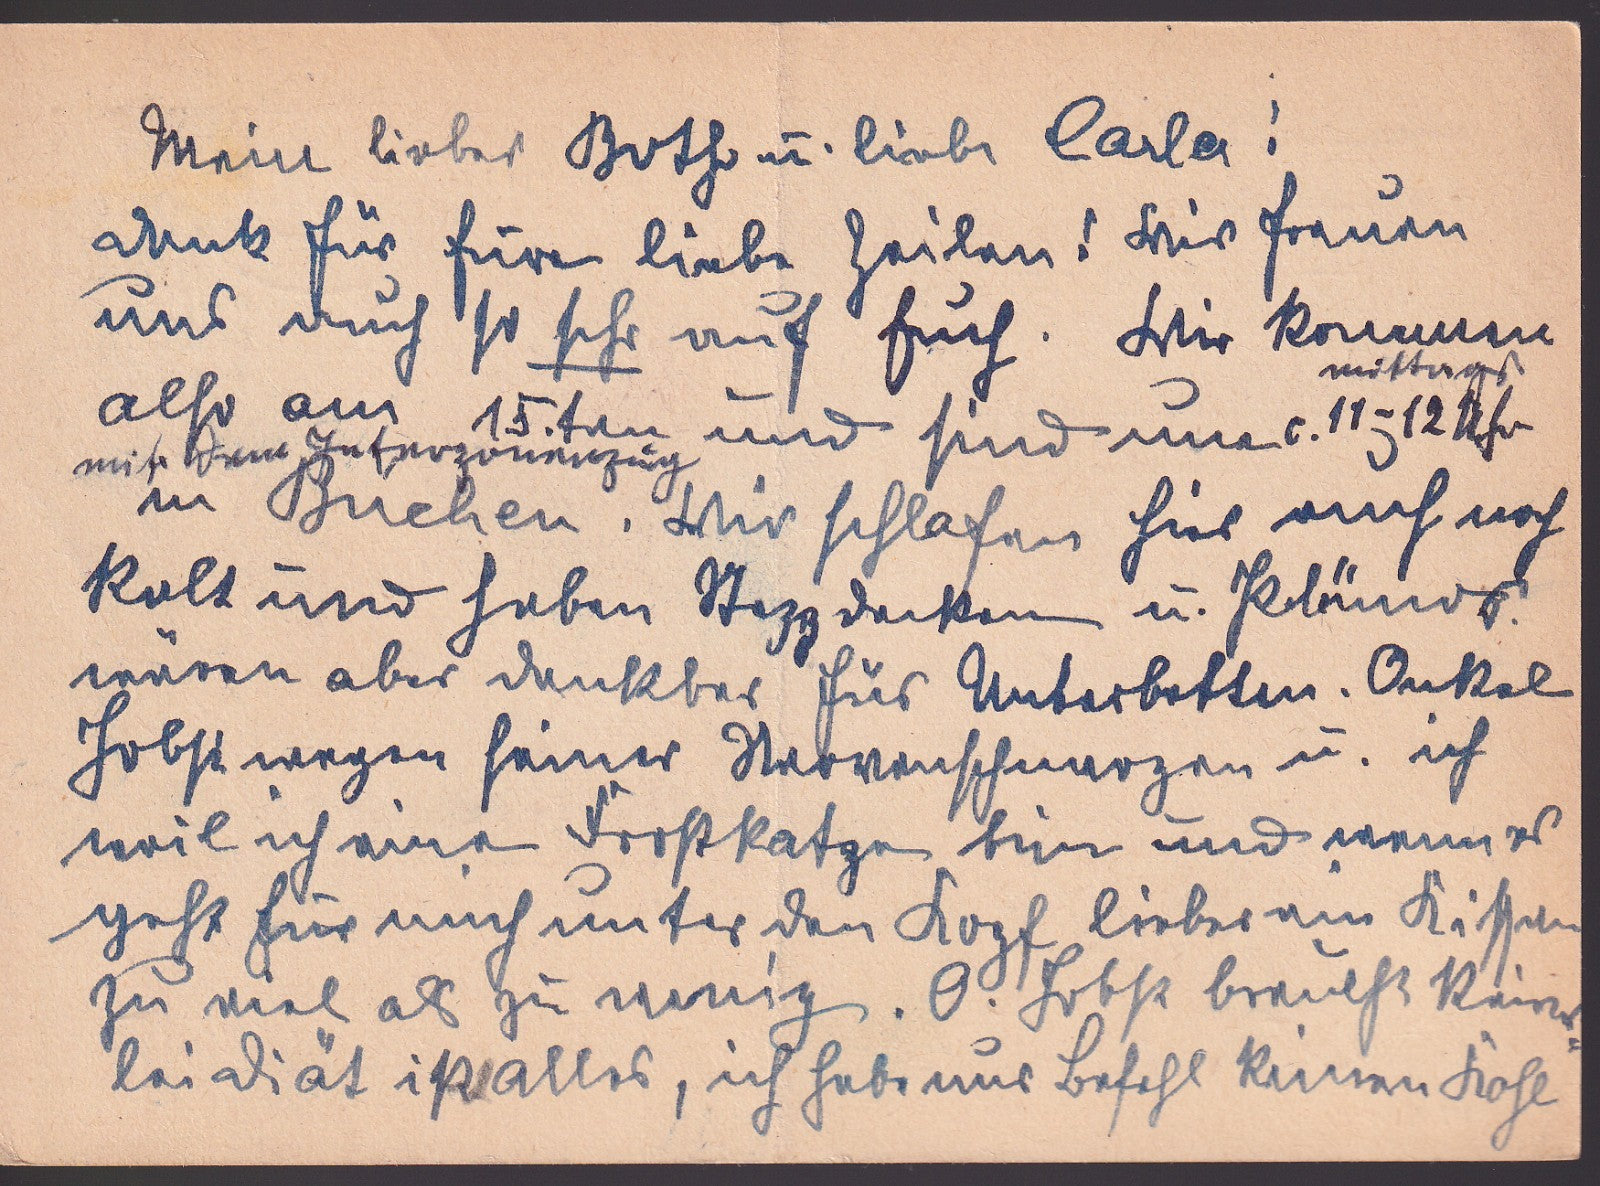 Mein lieber Botho u. liebe Carla!
dank für Eure liebe Zeilen! Wir freuen
uns auch so sehr auf Euch. Wir kommen
mittags
also am 15.ten und sind um c. 11-12 Uhr
mit dem Interzonenzug
in Büchen. Wir schlafen hier auch noch
kalt und haben Steppdecken u. Plümos!
wären aber dankbar für Unterbetten. Onkel
Jobst wegen seiner Nervenschmerzen u. ich
weil ich eine Frostkatze bin und wenn es
geht für mich unter den Kopf lieber ein Kissen
zu viel als zu wenig. O. Jobst braucht keiner=
lei Diät ißt alles, ich habe nur Befehl keinen Kohl